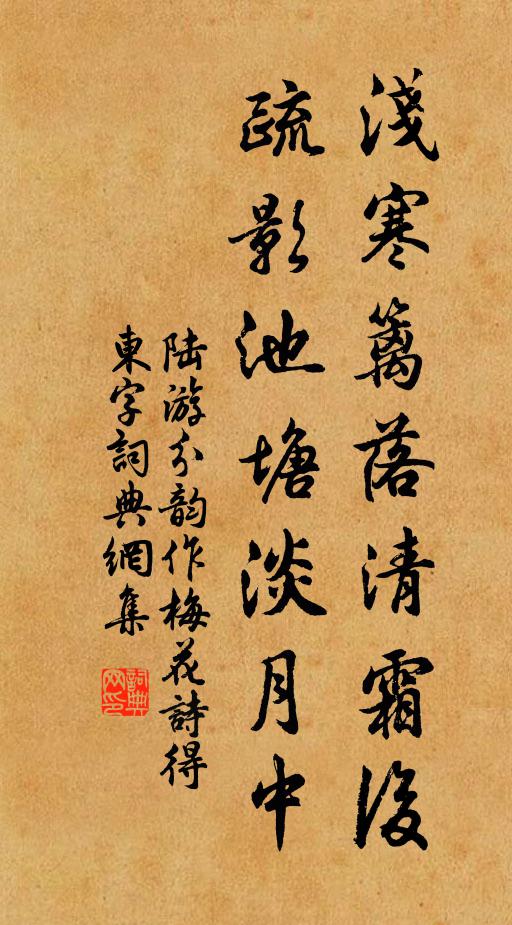 淺寒篱落清霜後
疏影池塘淡月中
陆游分韵作梅花詩得
東字詞典網集
詞典网印